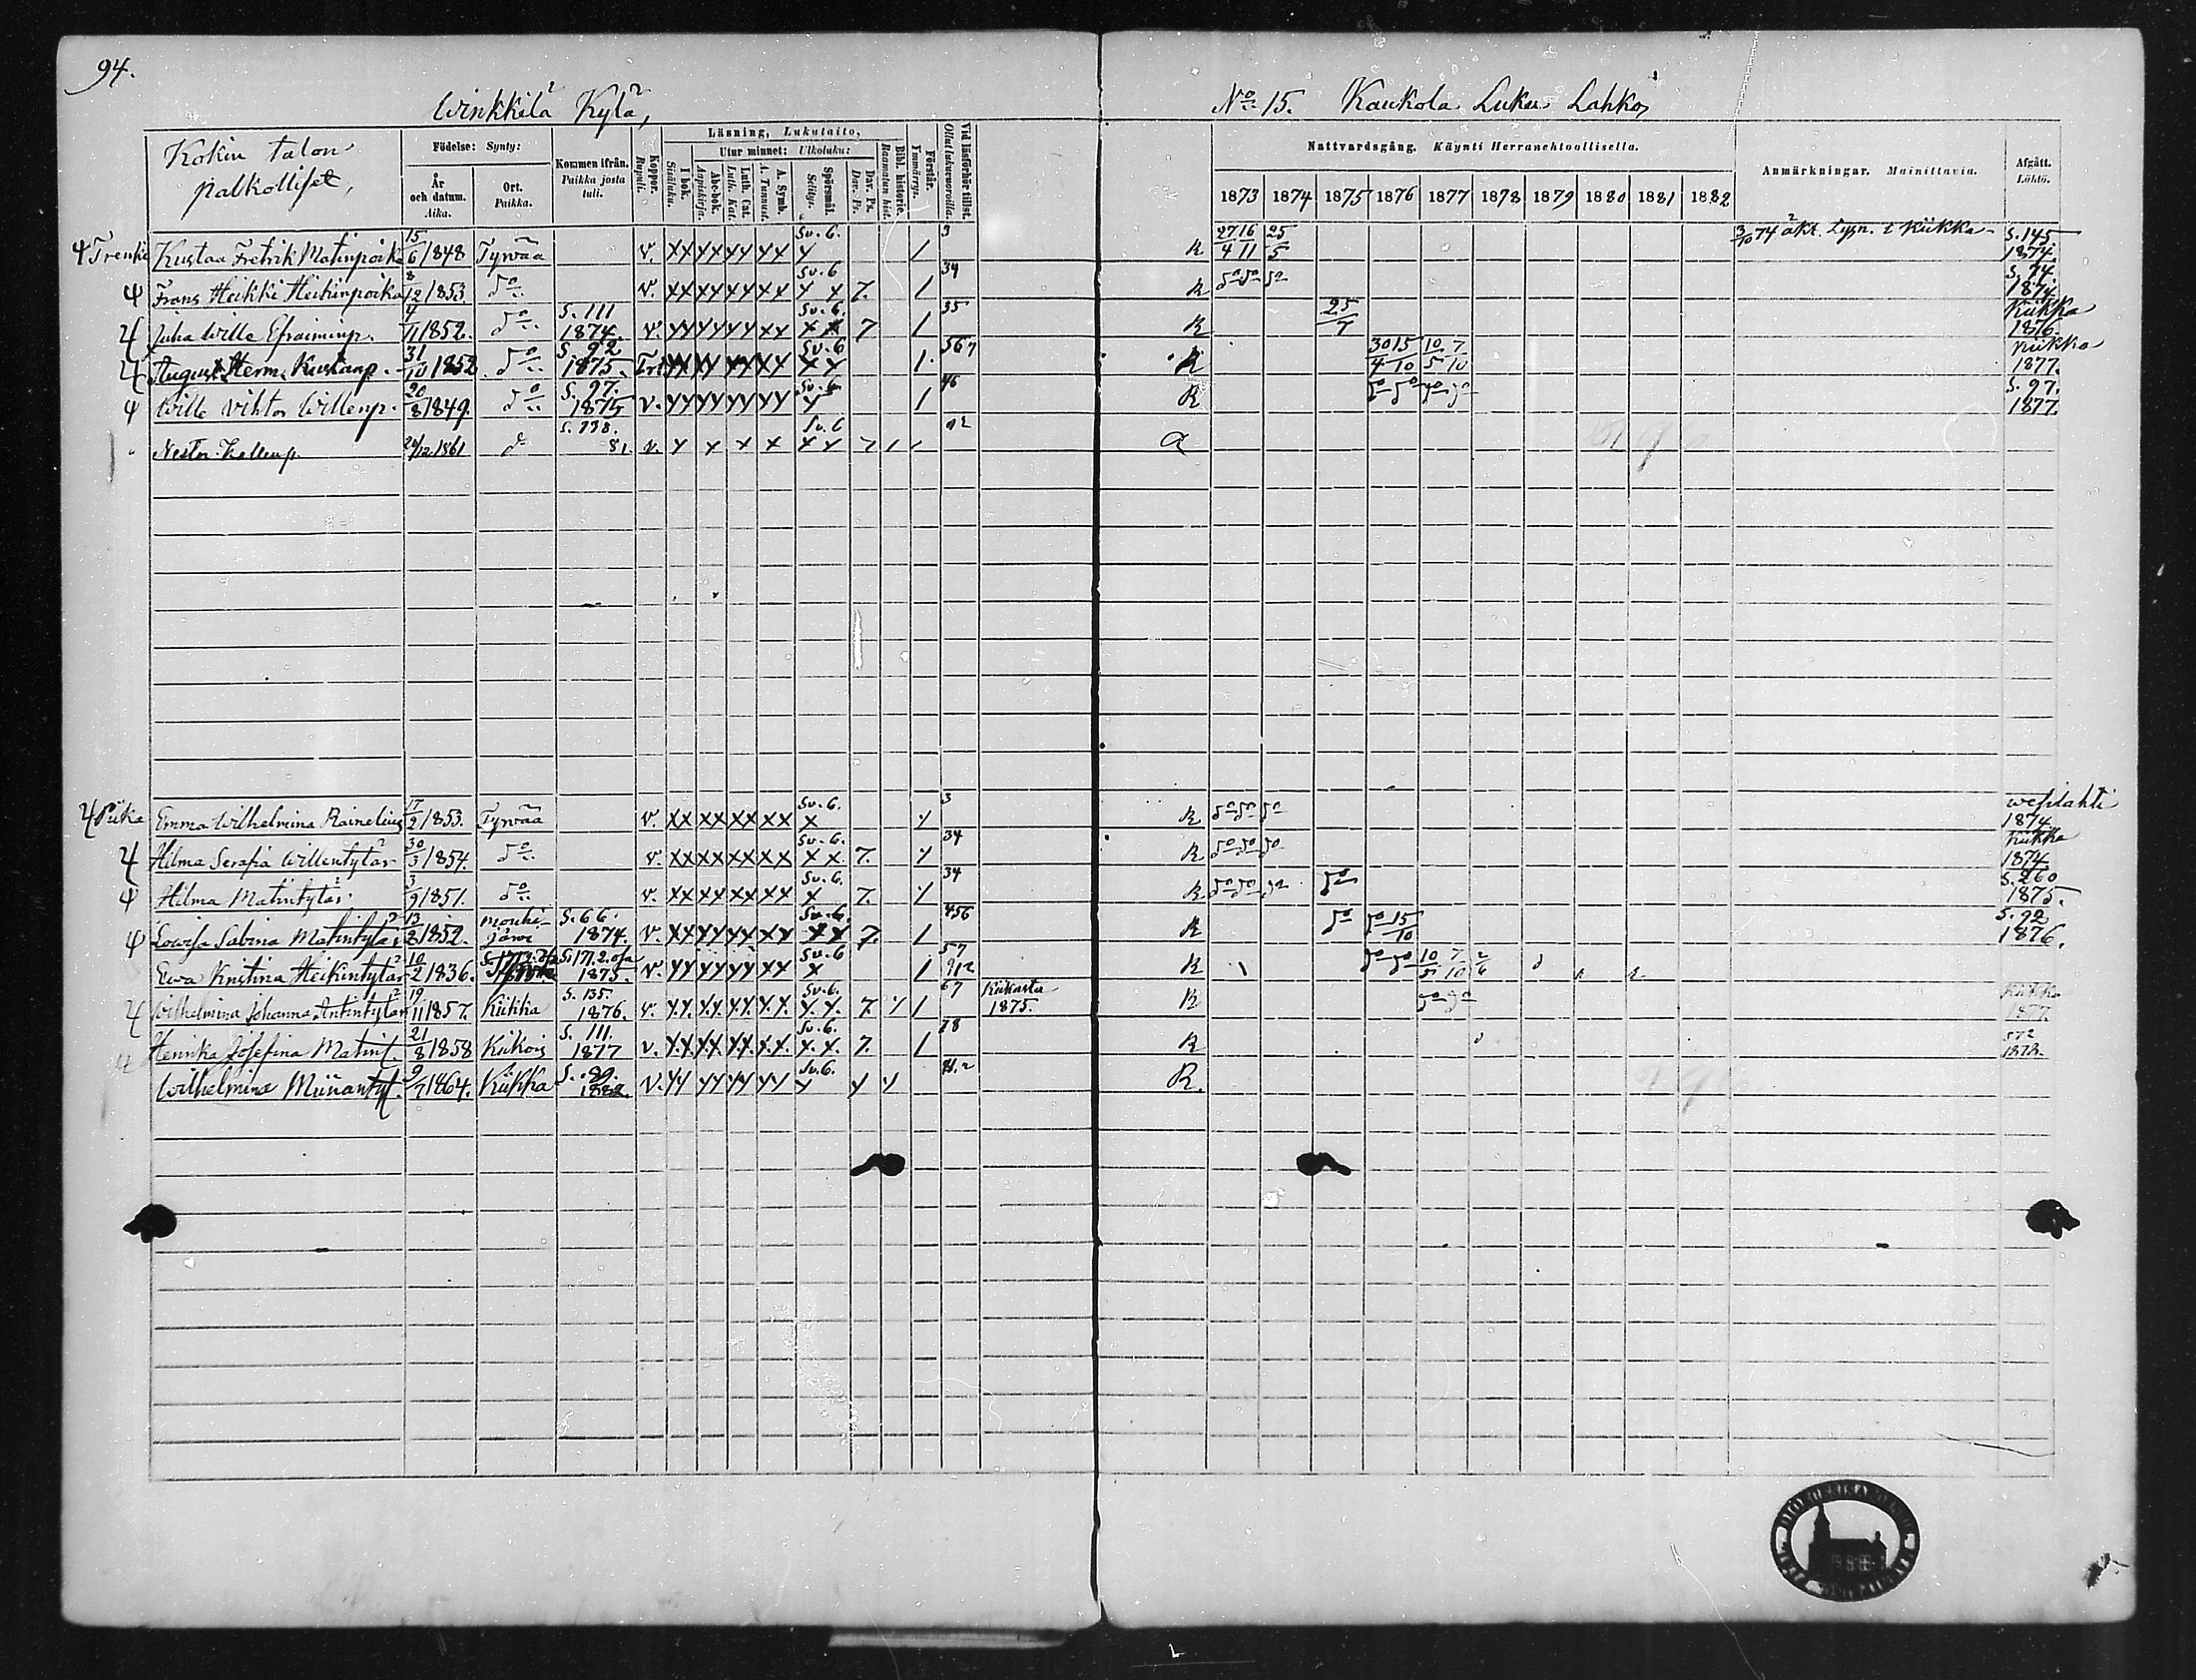 94.
Winkkilä Kylä,
No 15. Kaukola Luku Lahko,
Kokin talon palkolliset,
Födelse: Synty:
År och datum. Aika.
Ort. Paikka.
Kommen ifrån. Paikka josta tuli.
Koppor. Rupuli.
Läsning, Lukutaito,
I bok. Sisäluku.
Utur minnet: Ulkoluku:
Abc-bok. Aapiskirja.
Luth. Cat. Luth. Kat.
A. Symb. A. Tunnust.
Spörsmål. Selitys.
Dav. Ps. Dav. Ps.
Bibl. historie. Raamatun hist.
Förstår. Ymmärrys.
Vid läsförhör tillst. Ollut lukuvuorolla.
Nattvardsgång. Käynti Herranehtoollisella.
1873 1874 1875 1876 1877 1878 1879 1880 1881 1882
Anmärkningar. Mainittavia.
Afgått. Lähtö.
Trenki Kustaa Fretrik Matinpoika 15/6 1848 Tyrvää v. XX XX XX XX Sv. 6. X / 3 R 27/4 16/11 25/5 3/10 74 Kiikka S. 145 1874.
Frans Heikki Heikinpoika 8/12 1853. do v. XX XX XX XX Sv. 6 X X 7. / 34 R do do do S. 94 1874
Juha Wille Efraiminp. 4/11 1852. do S. 111 1874. v. XX XX XX XX Sv. 6. X X 7 / 35 R 25/7 Kiikka 1876.
August Herm. Kustaanp. 31/10 1852. do S. 92 1875. XX XX XX XX Sv. 6 X X /. 567 R 30/4 15/10 10/5 7/10 Kiikka 1877.
Wille Vihtor Willenp. 20/8 1849. do S. 97. 1875 v. XX XX XX XX Sv. 6 X / 46 R do do do do S. 97. 1877.
Nestor Kallenp. 1861 do S. 138. 81. v. X X X X Sv. 6 X X 7 / /
Piika Emma Wilhelmina Rainelius 17/2 1853. Tyrvää v. XX XX XX XX Sv. 6. X 3 R do do do Wesilahti 1874.
Hilma Serafia Willentytär 30/3 1854. do v. XX XX XX XX Sv. 6. X X 7. 34 R do do do Kiikka 1874.
Hilma Matintytär. 3/9 1851. do v. XX XX XX XX Sv. 6. X 7. 34 R do do do do S. 260 1875.
Lowisa Sabina Matintytär 13/2 1852. Mouhijärvi S. 66. 1874. v. XX XX XX XX Sv. 6. X X 7. / 456 R do do 15/10 S. 92 1876.
Ewa Kristina Heikintytär 10/2 1836. S. 171. 2. osa 1875. v. XX XX XX XX Sv. 6 X / 57 912 R do do 10/5 7/10 2/6
Wilhelmina Johanna Antintytär 19/11 1857. Kiikka S. 135. 1876. v. X.X. X.X. X.X. X.X. Sv. 6. X. X. 7. / 67 Kiikasta 1875. R do do Kiikka 1877
Henrika Josefina Matint. 21/8 1858 Kiikois S. 111. 1877 v. X.X. X.X. X.X. X.X. Sv. 6. X. X. 7. / 78 R 1878.
Wilhelmina Miinantyt. 9/7 1864. Kiikka S. 89. 1882. v. XX XX XX XX Sv. 6. X R.